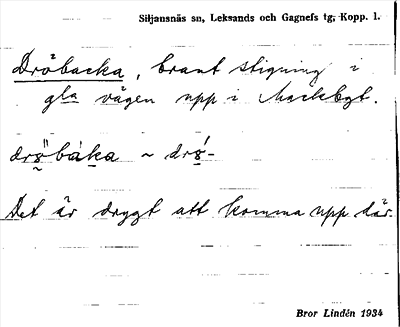 Siljansnäs sn, Leksands och Gagnefs tg, Kopp. l.
Dröbacka, brant stigning i
gla vägen upp i Mackbyt.
drö̀bàka ~ drö́-
Det är drygt att komma upp där.
Bror Lindén 1934